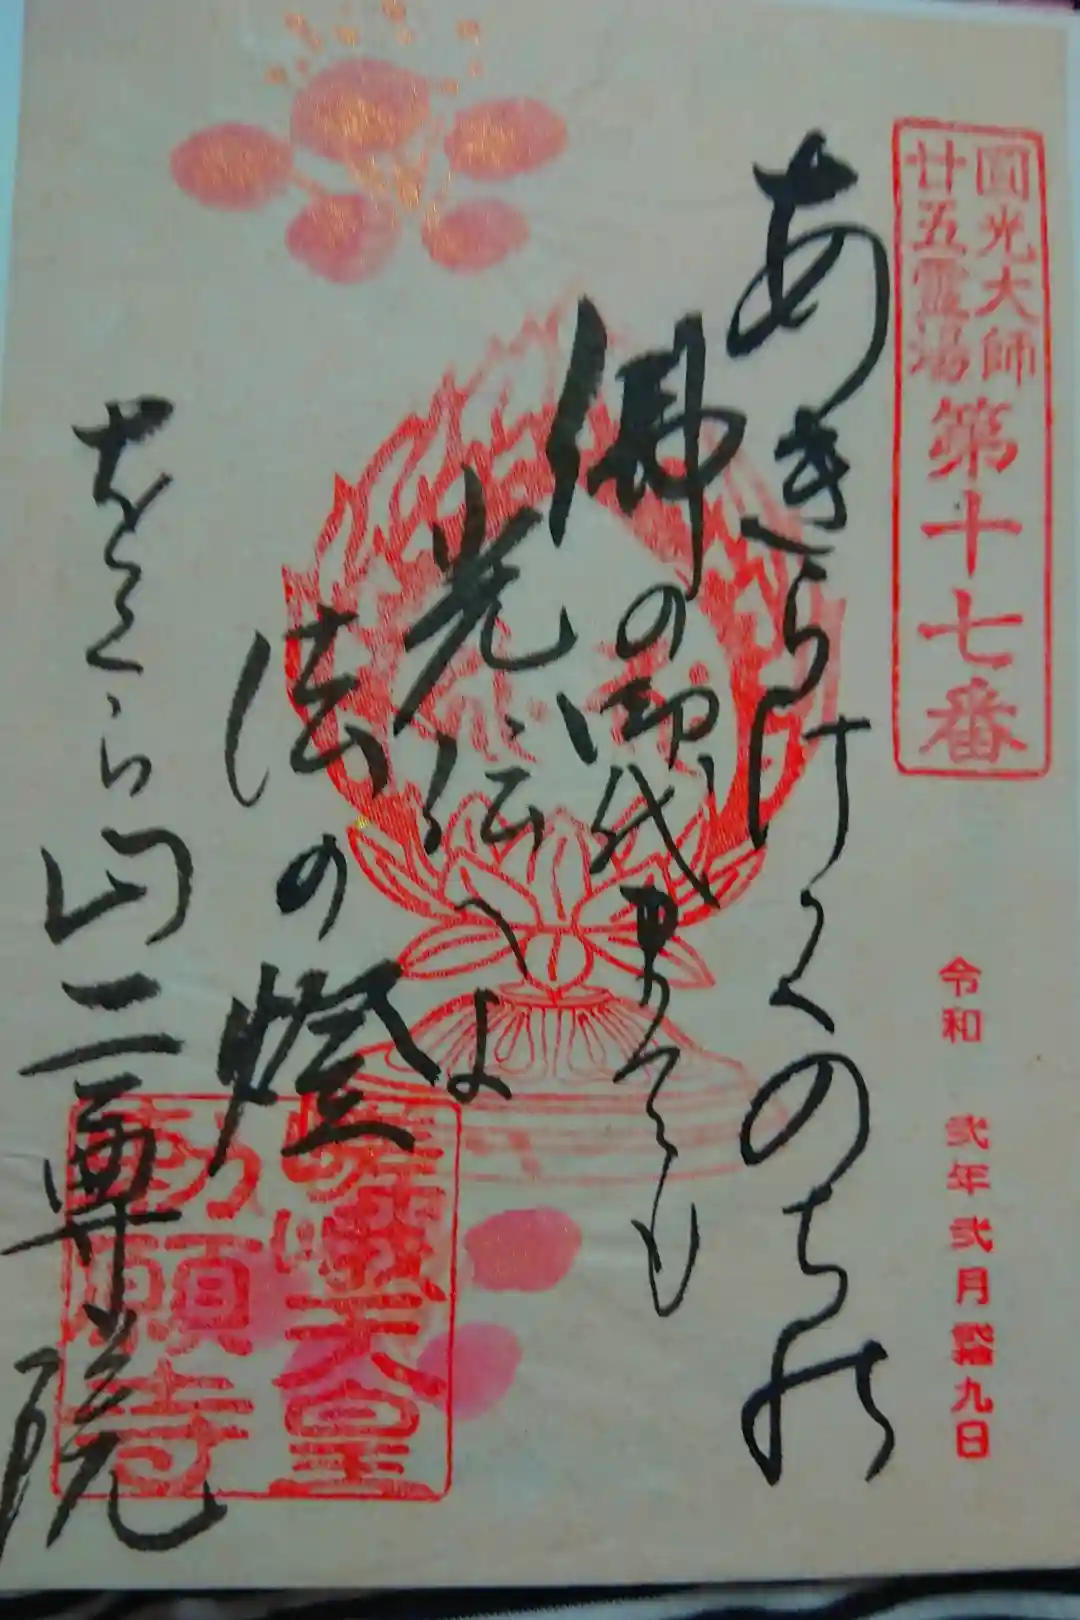 圓光大師
廿五霊場
第十七番
令和 弐年弐月 九日
あきらけくのちの
佛の御代まても
光伝へよ
法の燈
をくら山二尊院
嵯峨天皇
勅願寺